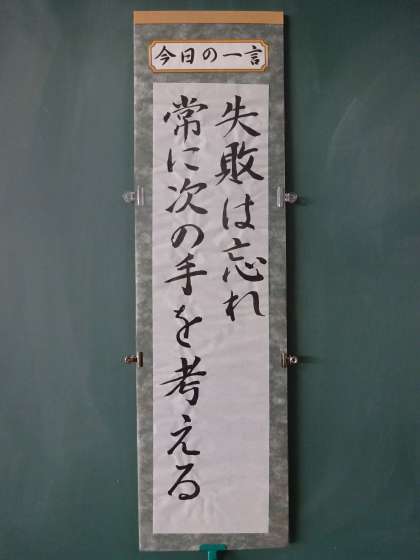 今日の一言
失敗は忘れ
常に次の手を考える